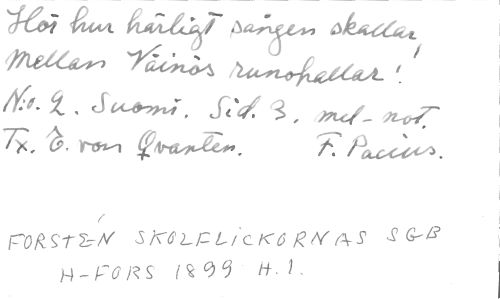 Hör hur härligt sången skallar,
Mellan Väinös runohallar!
N:o. 2. Suomi. Sid. 3. mel-not.
Tx. E. von Qvanten. F. Pacius.
FORSTÉN SKOLFLICKORNAS SGB
H-FORS 1899 H.1.